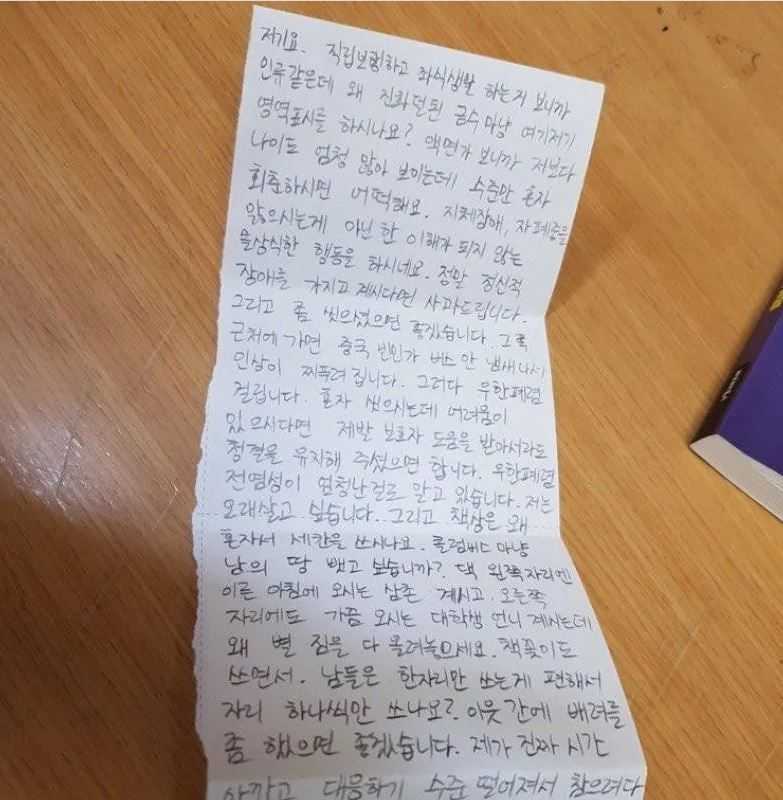 저기요. 직립보행하고 좌식생활 하는거 보니까
인류같은데 왜 진화덜된 금수마냥 여기저기
영역표시를 하시나요? 액면가 보니까 저보다
나이도 엄청 많아 보이는데 수준만 혼자
회춘하시면 어떡해요. 지체장애, 자폐증을
앓으시는게 아닌 한 이해가 되지 않는
몰상식한 행동을 하시네요. 정말 정신적
장애를 가지고 계시다면 사과드립니다.
그리고 좀 씻으셨으면 좋겠습니다. 그쪽
근처에 가면 중국 빈민가 버스 안 냄새나서
인상이 찌푸려 집니다. 그러다 우한폐렴
걸립니다. 혼자 씻으시는데 어려움이
있으시다면 제발 보호자 도움을 받아서라도
청결을 유지해 주셨으면 합니다. 우한폐렴
전염성이 엄청난걸로 알고 있습니다. 저는
오래살고 싶습니다. 그리고 책상은 왜
혼자서 세칸을 쓰시나요. 콜럼버스 마냥
남의 땅 뺏고 싶습니까? 댁 왼쪽자리엔
이른 아침에 오시는 삼촌 계시고. 오른쪽
자리에도 가끔 오시는 대학생 언니 계시는데
왜 별 짐을 다 올려놓으세요. 책꽂이도
쓰면서. 남들은 한자리만 쓰는게 편해서
자리 하나씩만 쓰나요? 이웃 간에 배려를
좀 했으면 좋겠습니다. 제가 진짜 시간
아깝고 대응하기 수준 떨어져서 참으려다